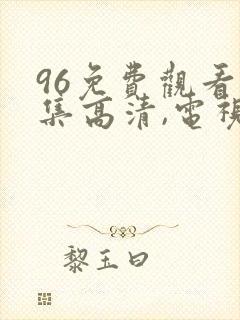 96免費觀看
集高清,電視
黎玉曰